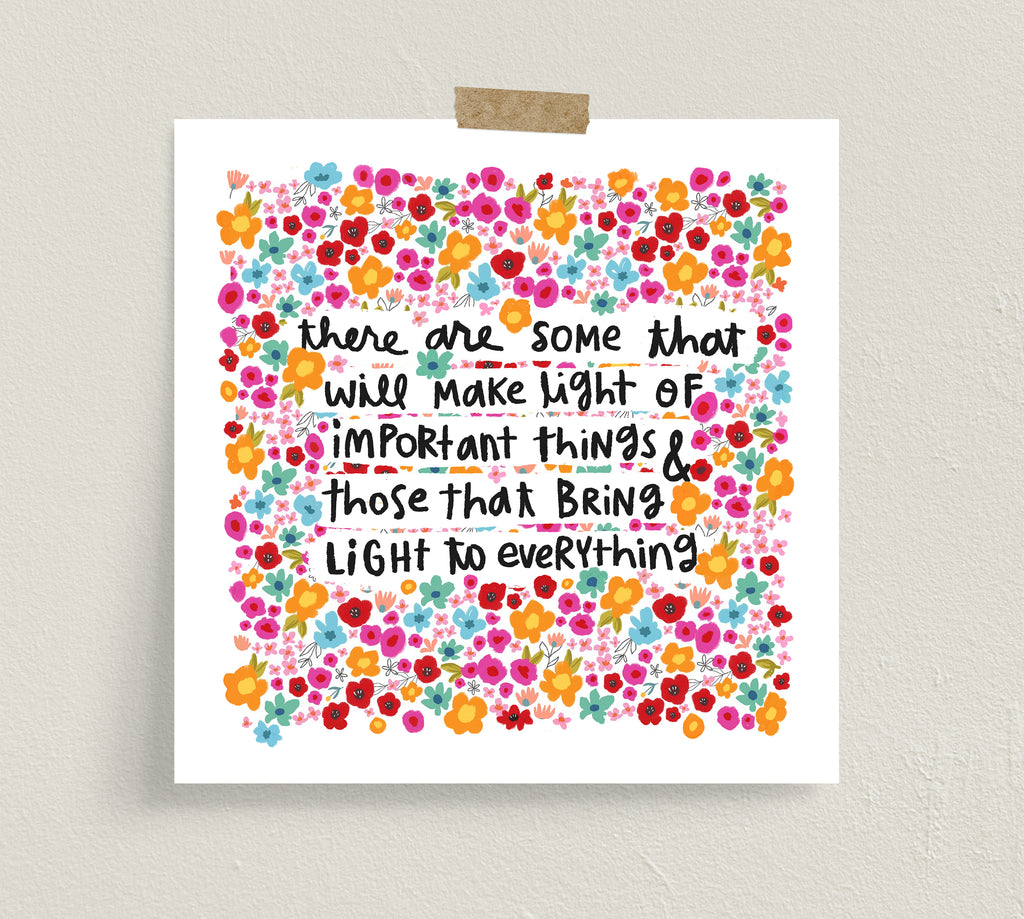 there are some that
will make light of
important things &
those that Bring
LiGHt to eveRything